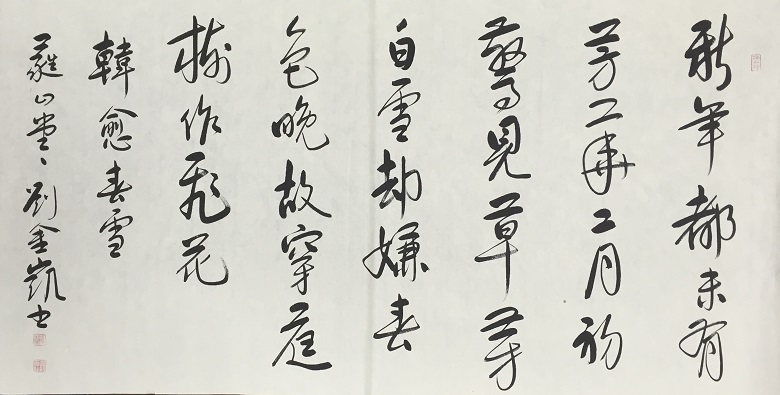 新年都未有
芳華二月初
驚見草芽
白雪却嫌春
色晚故穿庭
樹作飛花
韓愈春雪
山堂 劉金凱书